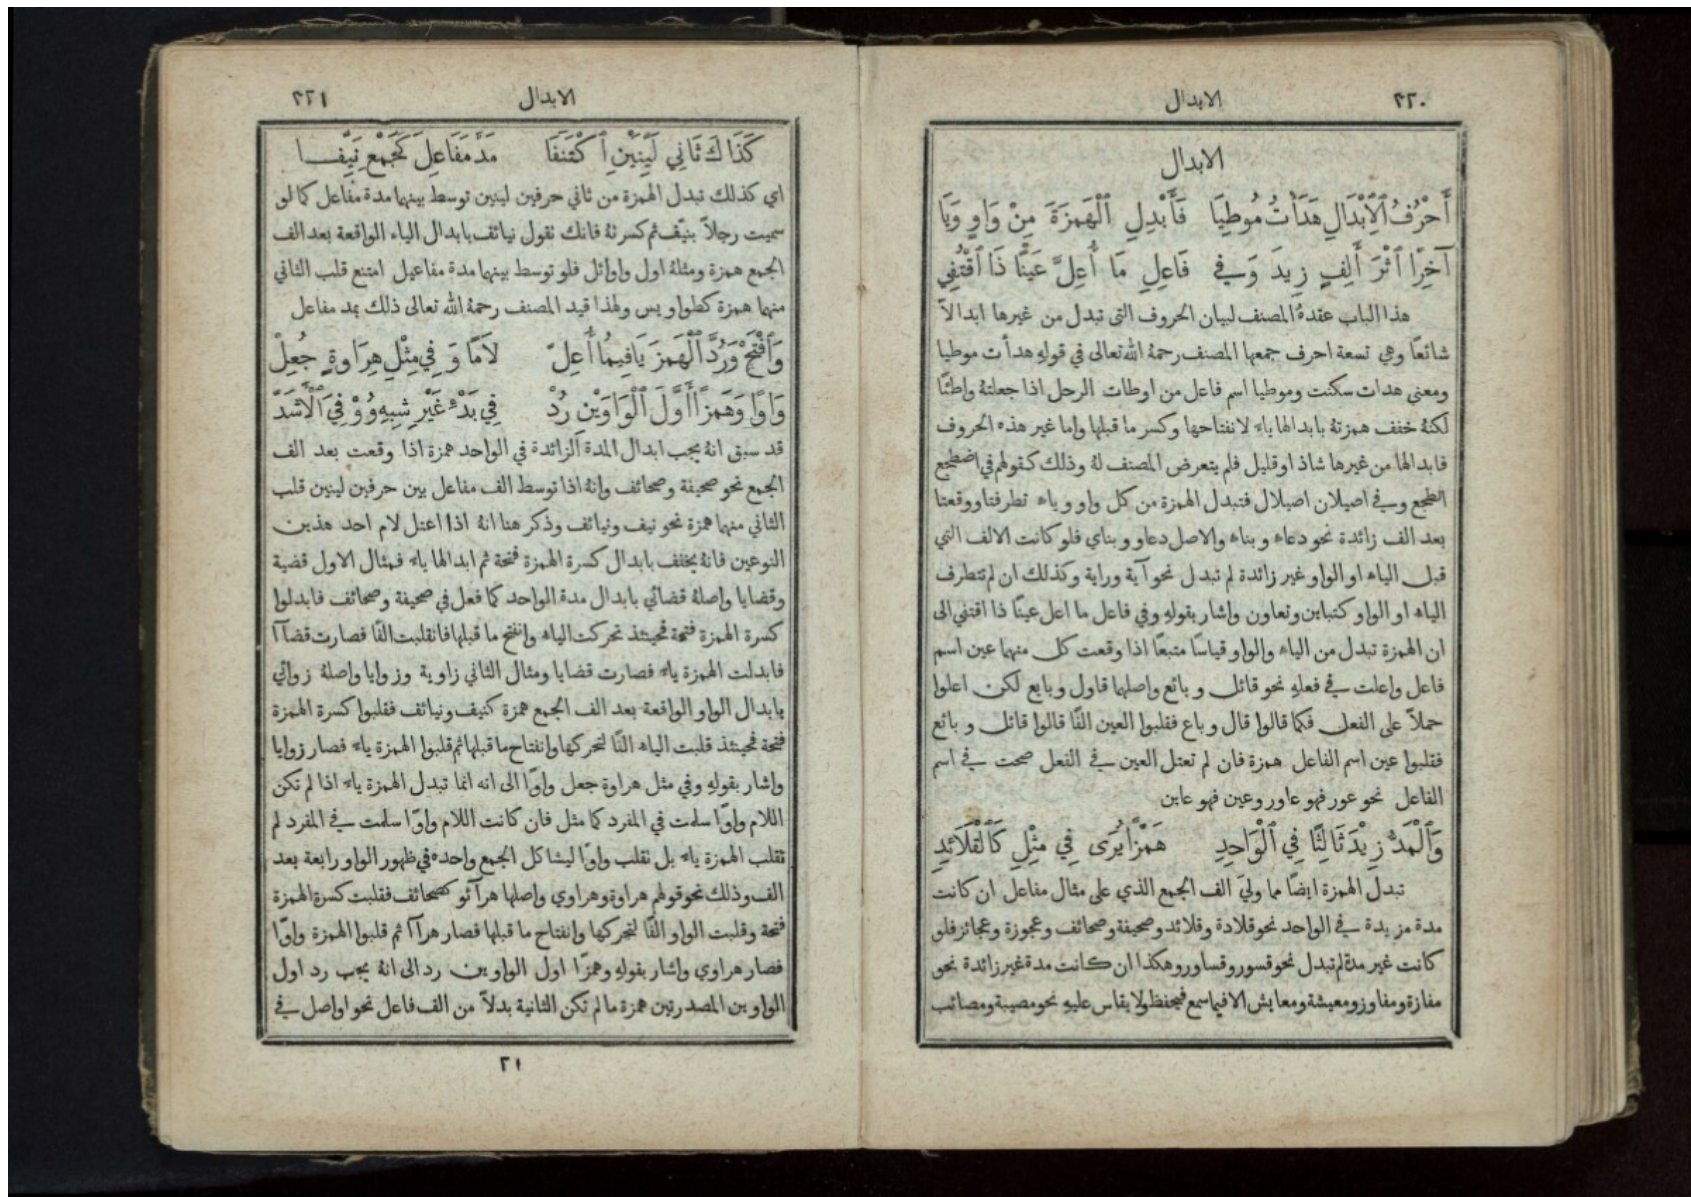 ٣٢٠
الابدال
الابدال
أَحْرُفُ ٱلْإِبْدَالِ هَدَأْتُ مُوطِيَا فَأَبْدِلِ ٱلْهَمْزَةَ مِنْ وَاوٍ وَيَا
آخِرًا ٱثْرَ أَلِفٍ زِيدَ وَفِي فَاعِلِ مَا أُعِلَّ عَيْنًا ذَا ٱقْتُفِي
هذا الباب عقدهُ المصنف لبيان الحروف التي تبدل من غيرها ابدالاً
شائعًا وهي تسعة احرف جمعها المصنف رحمهُ الله تعالى في قولهِ هدأت موطيا
ومعنى هدات سكنت وموطيا اسم فاعل من اوطات الرحل اذا جعلتهُ واطئًا
لكنهُ خفف همزتهُ بابدالها ياءً لانفتاحها وكسر ما قبلها واما غير هذه الحروف
فابدالها من غيرها شاذ او قليل فلم يتعرض المصنف لهُ وذلك كقولهم في اضطجع
الطجع وفي اصيلان اصيلال فتبدل الهمزة من كل واو وياء تطرفتا ووقعتا
بعد الف زائدة نحو دعاء وبناء والاصل دعاو وبناي فلو كانت الالف التي
قبل الياء او الواو غير زائدة لم تبدل نحو آية وراية وكذلك ان لم تتطرف
الياء او الواو كتباين وتعاون واشار بقولهِ وفي فاعل ما اعل عينًا ذا اقتفي الى
ان الهمزة تبدل من الياء والواو قياسًا متبعًا اذا وقعت كل منهما عين اسم
فاعل واعلت في فعلهِ نحو قائل وبائع واصلهما قاول وبايع لكن اعلوا
حملاً على الفعل فكما قالوا قال وباع فقلبوا العين الفًا قالوا قائل وبائع
فقلبوا عين اسم الفاعل همزة فان لم تعتل العين في الفعل صحت في اسم
الفاعل نحو عور فهو عاور وعين فهو عاين
وَٱلْمَدُّ زِيْدَ ثَالِثًا فِي ٱلْوَاحِدِ هَمْزًا يُرَى فِي مِثْلِ كَٱلْقَلَائِدِ
تبدل الهمزة ايضًا مما وليَ الف الجمع الذي على مثال مفاعل ان كانت
مدة مزيدة في الواحد نحو قلادة وقلائد وصحيفة وصحائف وعجوزة وعجائز فلو
كانت غير مدة لم تبدل نحو قسور وقساور وهكذا ان كانت مدة غير زائدة نحو
مفازة ومفاوز ومعيشة ومعايش الا فيما سمع فيحفظ ولا يقاس عليهِ نحو مصيبة ومصائب
الابدال
٣٢١
كَذَاكَ ثَانِي لَيِّنَيْنِ ٱكْتَنَفَا مَدَّ مَفَاعِلَ كَجَمْعِ نَيِّفَا
اي كذلك تبدل الهمزة من ثاني حرفين لينين توسط بينهما مدة مفاعل كما لو
سميت رجلاً بنيّف ثم كسرتهُ فانك تقول نيائف بابدال الياء الواقعة بعد الف
الجمع همزة ومثلهُ اول واوائل فلو توسط بينهما مدة مفاعيل امتنع قلب الثاني
منهما همزة كطواويس ولهذا قيد المصنف رحمهُ الله تعالى ذلك بمد مفاعل
وَٱفْتَحْ وَرُدَّ ٱلْهَمْزَ يَا فِيمَا أُعِلّ لَامًا وَفِي مِثْلِ هِرَاوَةٍ جُعِلْ
وَاوًا وَهَمْزًا أَوَّلَ ٱلْوَاوَيْنِ رُدّ فِي بَدْءِ غَيْرِ شِبْهِ وُوْفِيَ ٱلْأَشَدّ
قد سبق انهُ يجب ابدال المدة الزائدة في الواحد همزة اذا وقعت بعد الف
الجمع نحو صحيفة وصحائف وانهُ اذا توسط الف مفاعل بين حرفين لينين قلب
الثاني منهما همزة نحو نيف ونيائف وذكر هنا انهُ اذا اعتل لام احد هذين
النوعين فانهُ يخفف بابدال كسرة الهمزة فتحة ثم ابدالها ياءً فمثال الاول قضية
وقضايا واصلهُ قضائي بابدال مدة الواحد كما فعل في صحيفة وصحائف فابدلوا
كسرة الهمزة فتحة فحينئذ تحركت الياء وانفتح ما قبلها فانقلبت الفًا فصارت قضآا
فابدلت الهمزة ياءً فصارت قضايا ومثال الثاني زاوية وزوايا واصلهُ زوائي
بابدال الواو الواقعة بعد الف الجمع همزة كنيف ونيائف فقلبوا كسرة الهمزة
فتحة فحينئذ قلبت الياء الفًا لتحركها وانفتاح ما قبلها ثم قلبوا الهمزة ياءً فصار زوايا
واشار بقولهِ وفي مثل هراوة جعل واوًا الى انه انما تبدل الهمزة ياءً اذا لم تكن
اللام واوًا سلمت في المفرد كما مثل فان كانت اللام واوًا سلمت في المفرد لم
تقلب الهمزة ياءً بل تقلب واوًا ليشاكل الجمع واحده في ظهور الواو رابعة بعد
الف وذلك نحو قولهم هراوة وهراوي واصلها هرآئو كصحائف فقلبت كسرة الهمزة
فتحة وقلبت الواو الفًا لتحركها وانفتاح ما قبلها فصار هرآا ثم قلبوا الهمزة واوًا
فصار هراوي واشار بقولهِ وهمزًا اول الواوين رد الى انهُ يجب رد اول
الواوين المصدرتين همزة ما لم تكن الثانية بدلاً من الف فاعل نحو اواصل في
٢١